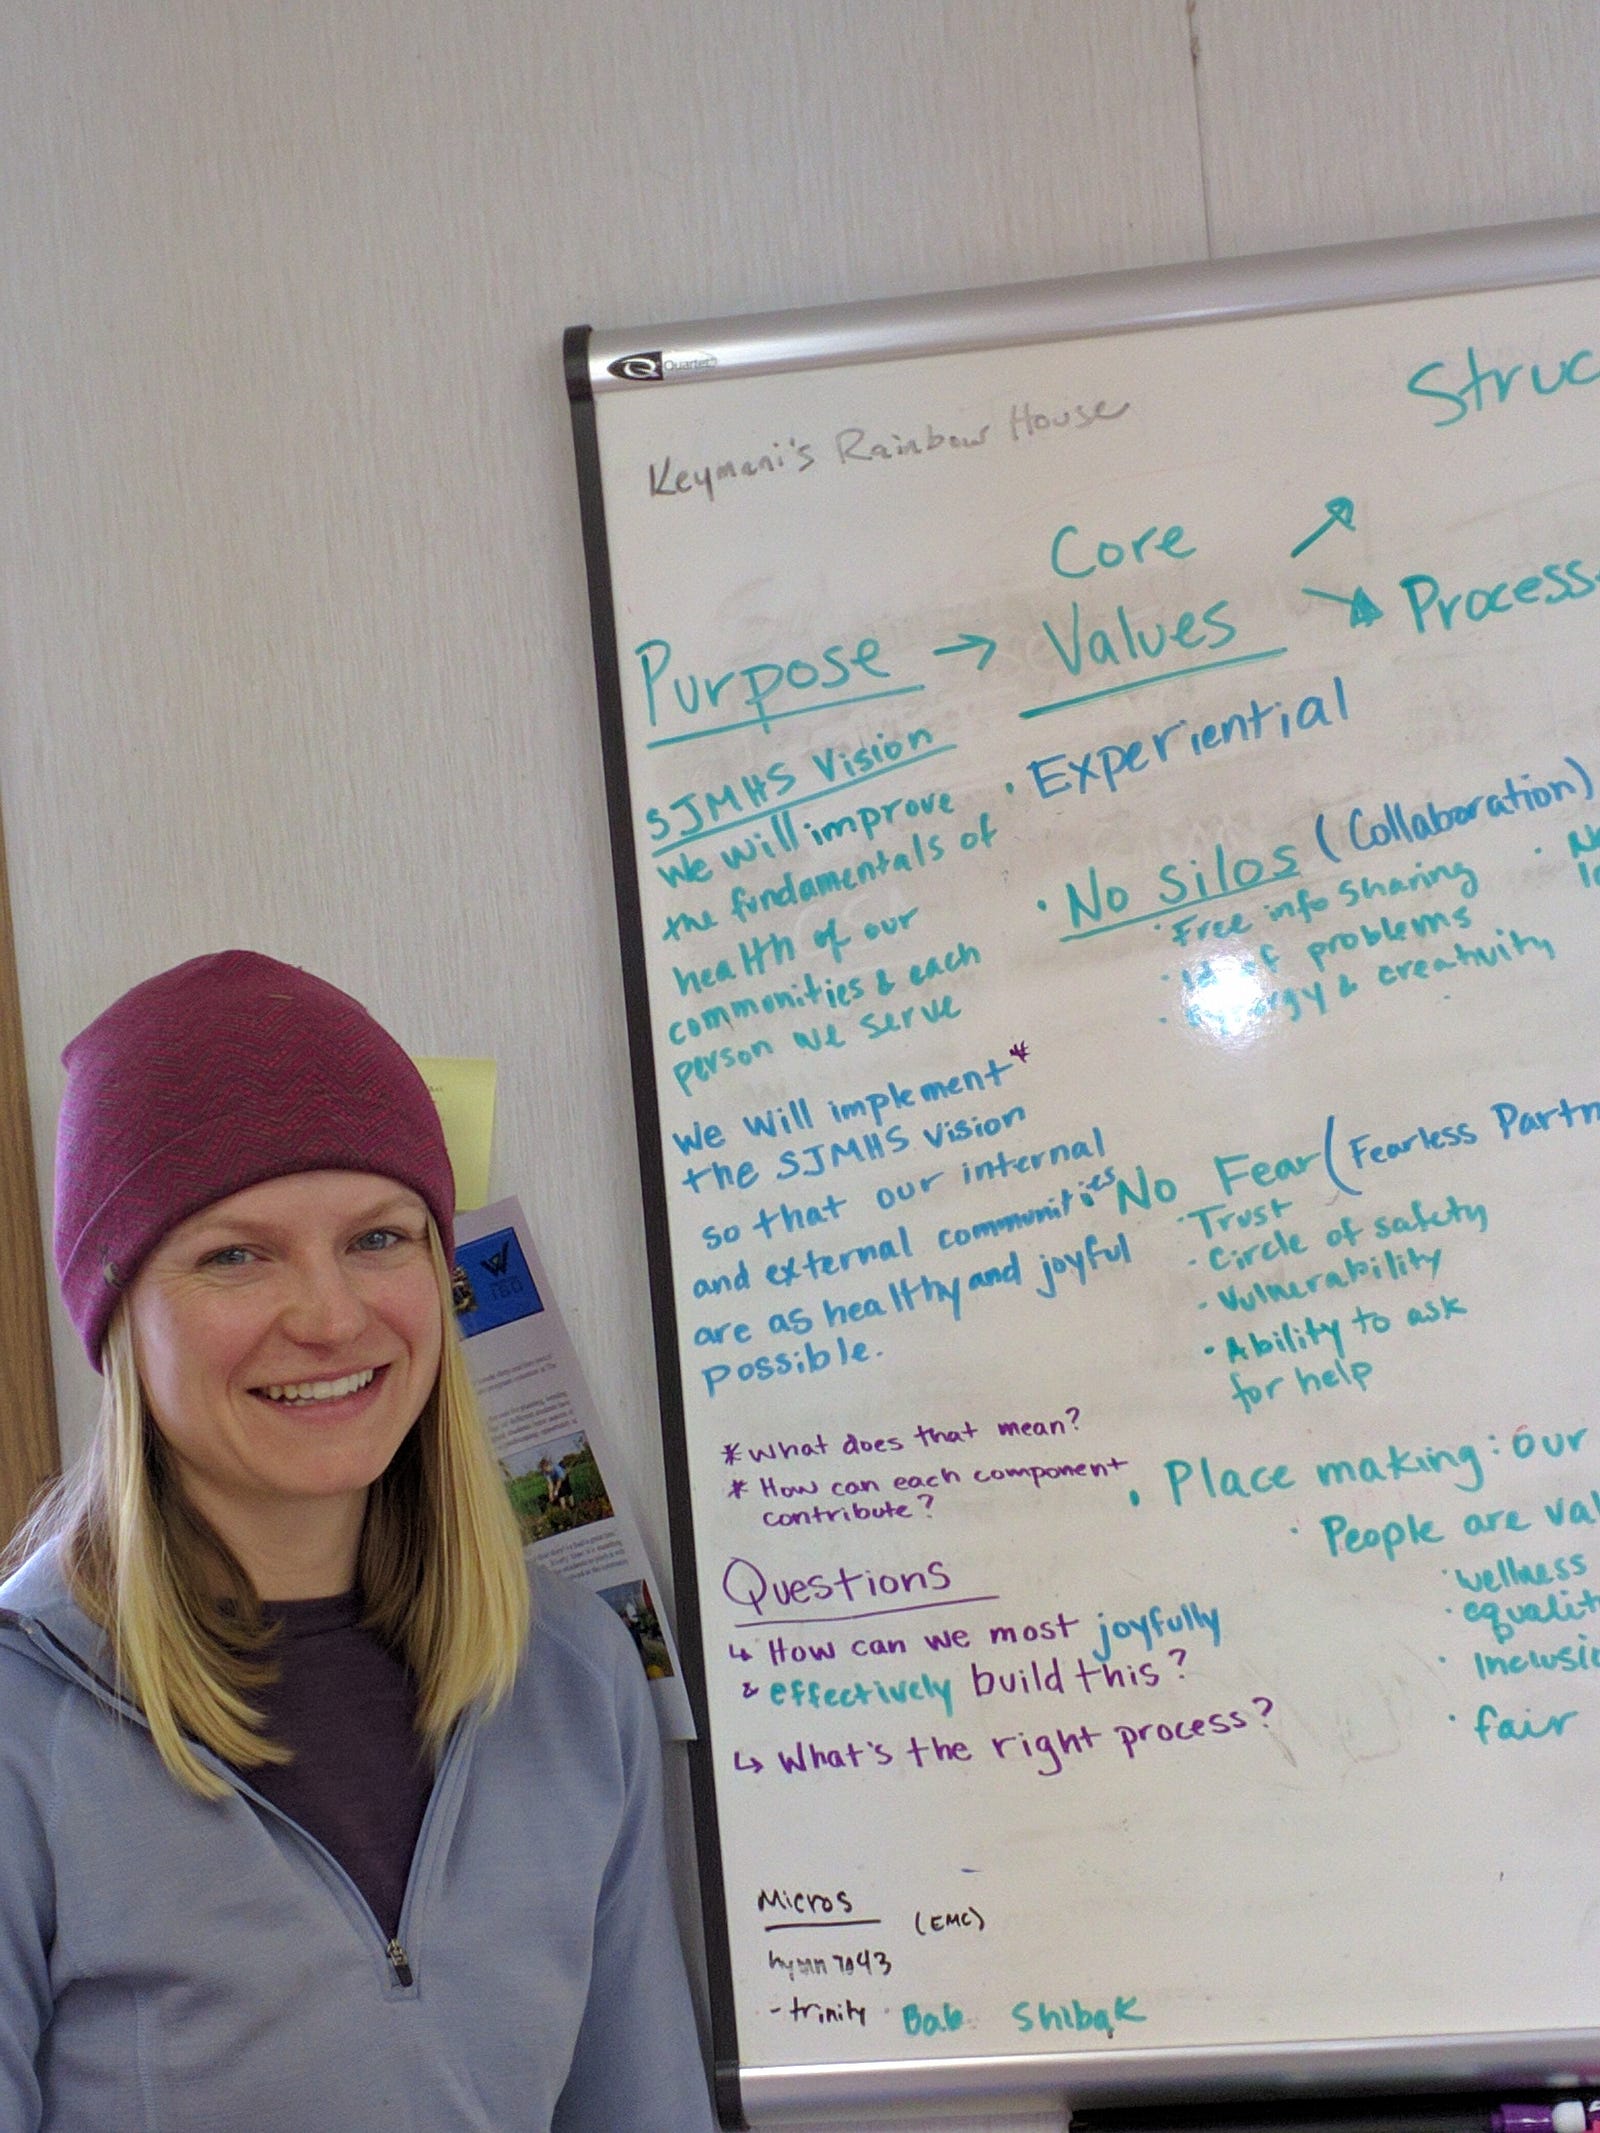 Quartet
Keymani's Rainbow House
Struc
Core
Values
Process
Purpose →
SJMHS Vision
We will improve
the fundamentals of
health of our
communities & each
person we serve
We will implement*
the SJMHS Vision
so that our internal
and external communities
are as healthy and joyful
possible.
* What does that mean?
* How can each component
contribute?
Questions
↳ How can we most joyfully
& effectively build this?
↳ What's the right process?
Micros
(EMC)
- trinity
Shibak
• Experiential
• No silos (Collaboration)
• Free info sharing
of problems
& creativity
• No Fear (Fearless Partn
• Trust
• Circle of safety
• Vulnerability
• Ability to ask
for help
• Place making: Our
• People are val
• wellness
• equalit
• Inclusi
• fair